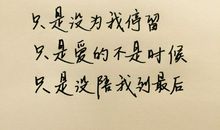 只是没为我停留
只是爱的不是时候
只是没陪我到最后